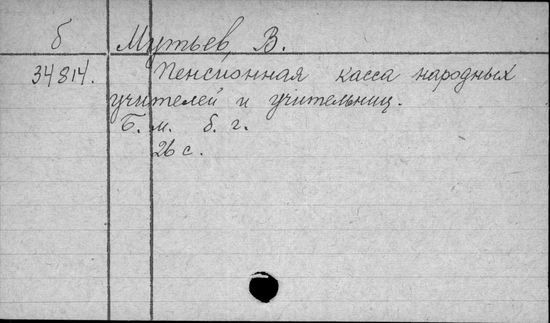 б Мутьев, В.
34814. Пенсионная касса народных
учителей и учительниц.
Б. м. б. г.
26 с.